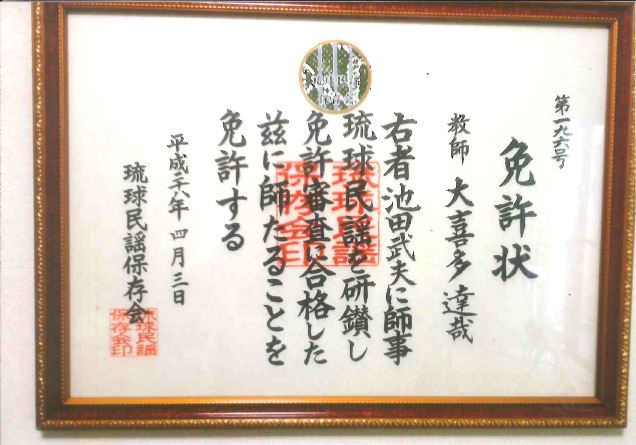 第一九六号
免許状
教師 大喜多達哉
右者池田武夫に師事
琉球民謡を研鑚し
免許審査に合格した
茲に師たることを
免許する
平成二六年四月三日
琉球民謡保存会
琉球民謡
保存会印
琉球民謡
保存会印